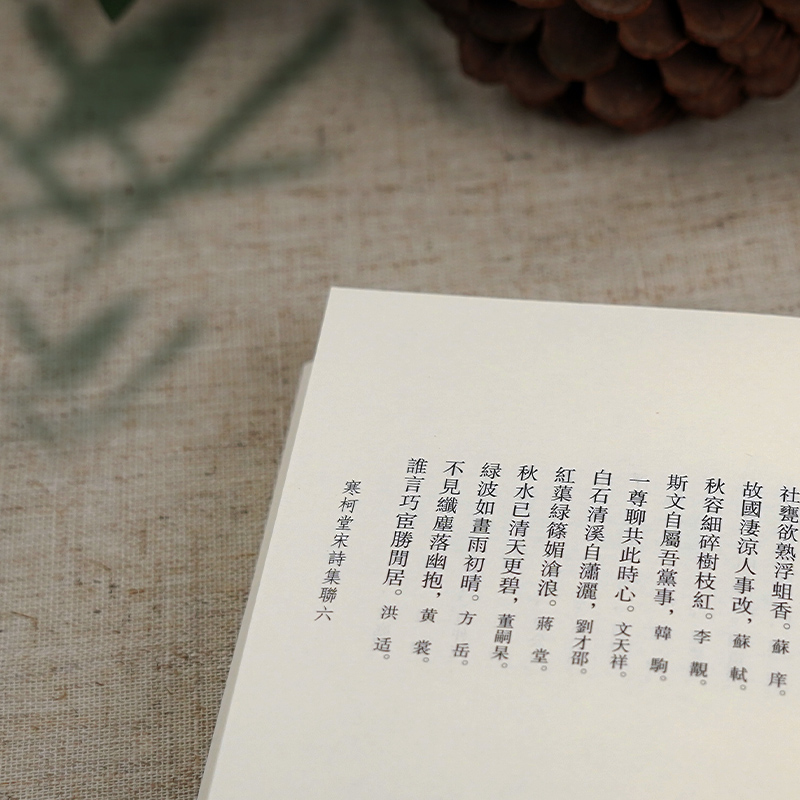 社甕欲熟浮蛆香。蘇 庠。
故國淒涼人事改，蘇 軾。
秋容細碎樹枝紅。李 覯。
斯文自屬吾黨事，韓 駒。
一尊聊共此時心。文天祥。
白石清溪自瀟灑，劉才邵。
紅蕖緑篠媚滄浪。蔣 堂。
秋水已清天更碧，董嗣杲。
緑波如畫雨初晴。方 岳。
不見纖塵落幽抱，黃 裳。
誰言巧宦勝閒居。洪 适。
寒柯堂宋詩集聯 六